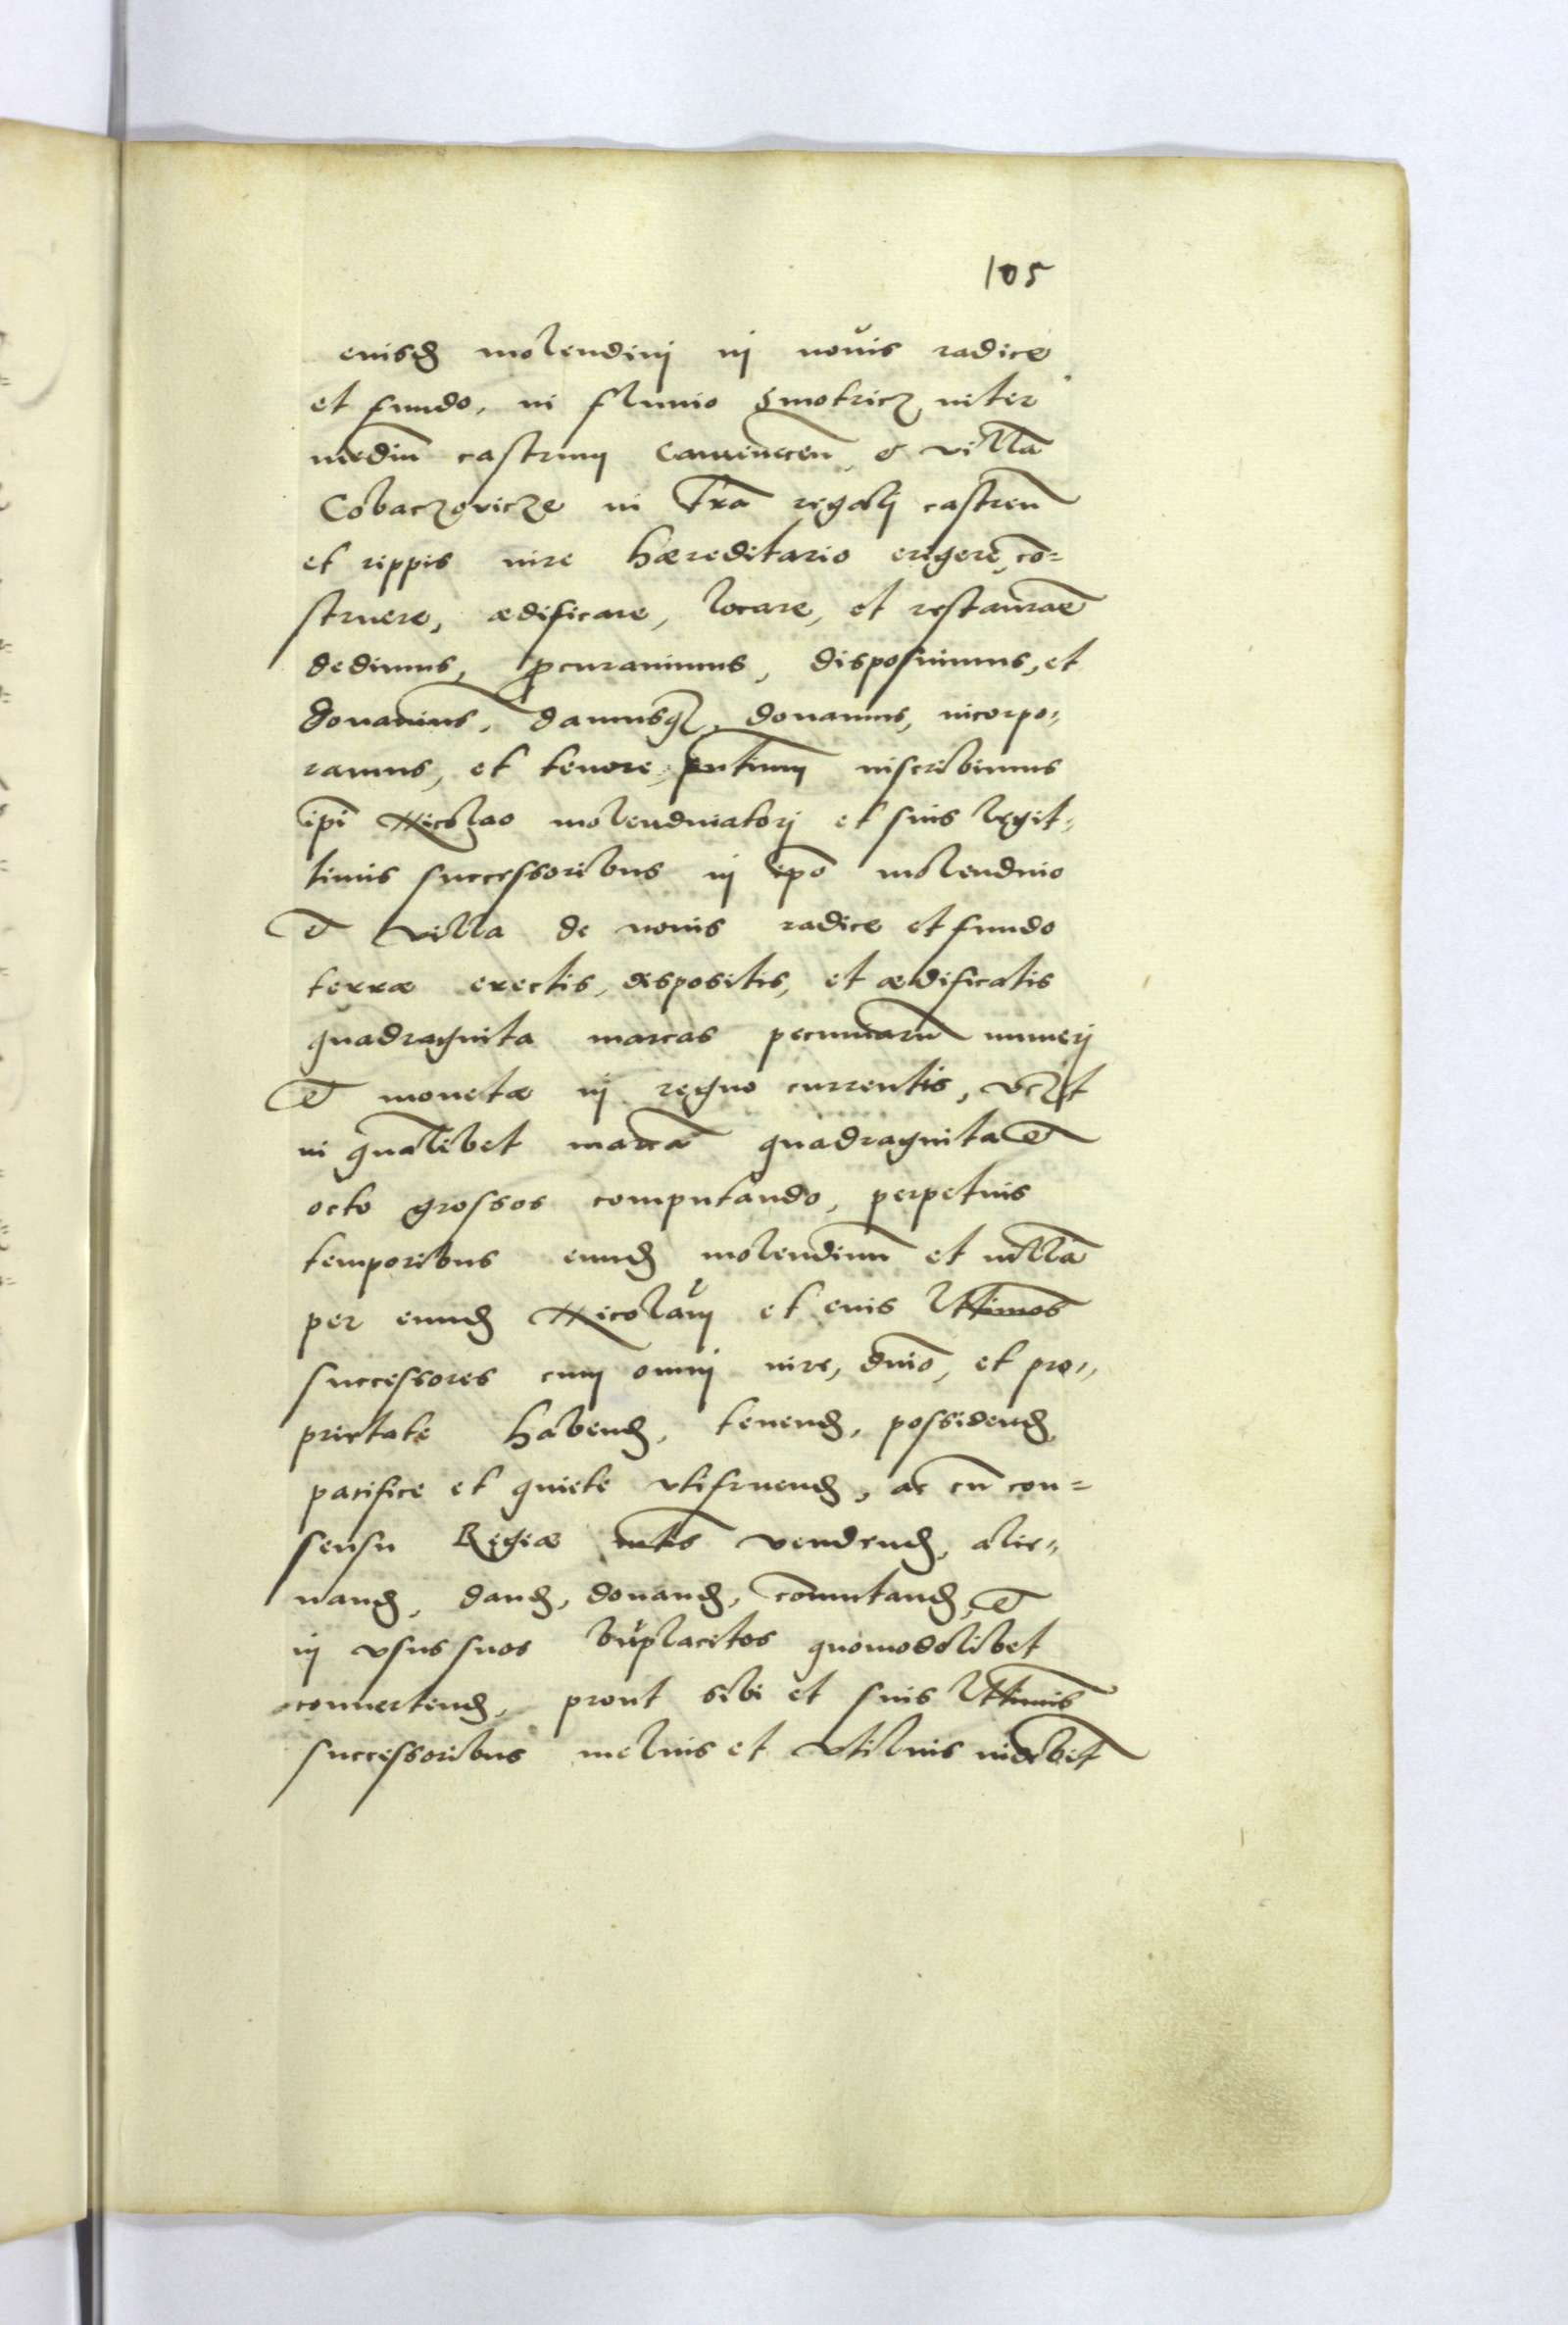 105
eiusd molendini in nouis radice
et fundo, in fluuio Smotricz inter
mediu castrum Camenecen et villa
Cobaczovicze in tra regali castren
et rippis iure haereditario erigere, co=
struere, aedificare, locare, et restaurae
dedimus, procurauimus, disposuimus, et
donauimus, damusq, donamus, incorpo=
ramus, et tenore pntium inscribimus
ipi Nicolao molendinatori et suis legit=
timis successoribus in ipo molendino
et villa de nouis radice et fundo
terrae erectis, dispositis, et aedificatis
quadraginta marcas pecuniaru numeri
et monetae in regno currentis, vczt
in qualibet marca quadraginta et
octo grossos computando, perpetuis
temporibus eund molendinu et villa
per eund Nicolaum et eius lttimos
successores cum omni iure, dnio, et pro=
prietate habend, tenend, possidend,
pacifice et quiete vtifruend, ac cu con=
sensu Regiae mtis vendend, alie=
nand, dand, donand, comutand, et
in vsus suos bnplacitos quomodolibet
conuertend, prout sibi et suis lttimis
successoribus melius et vtilius videbit